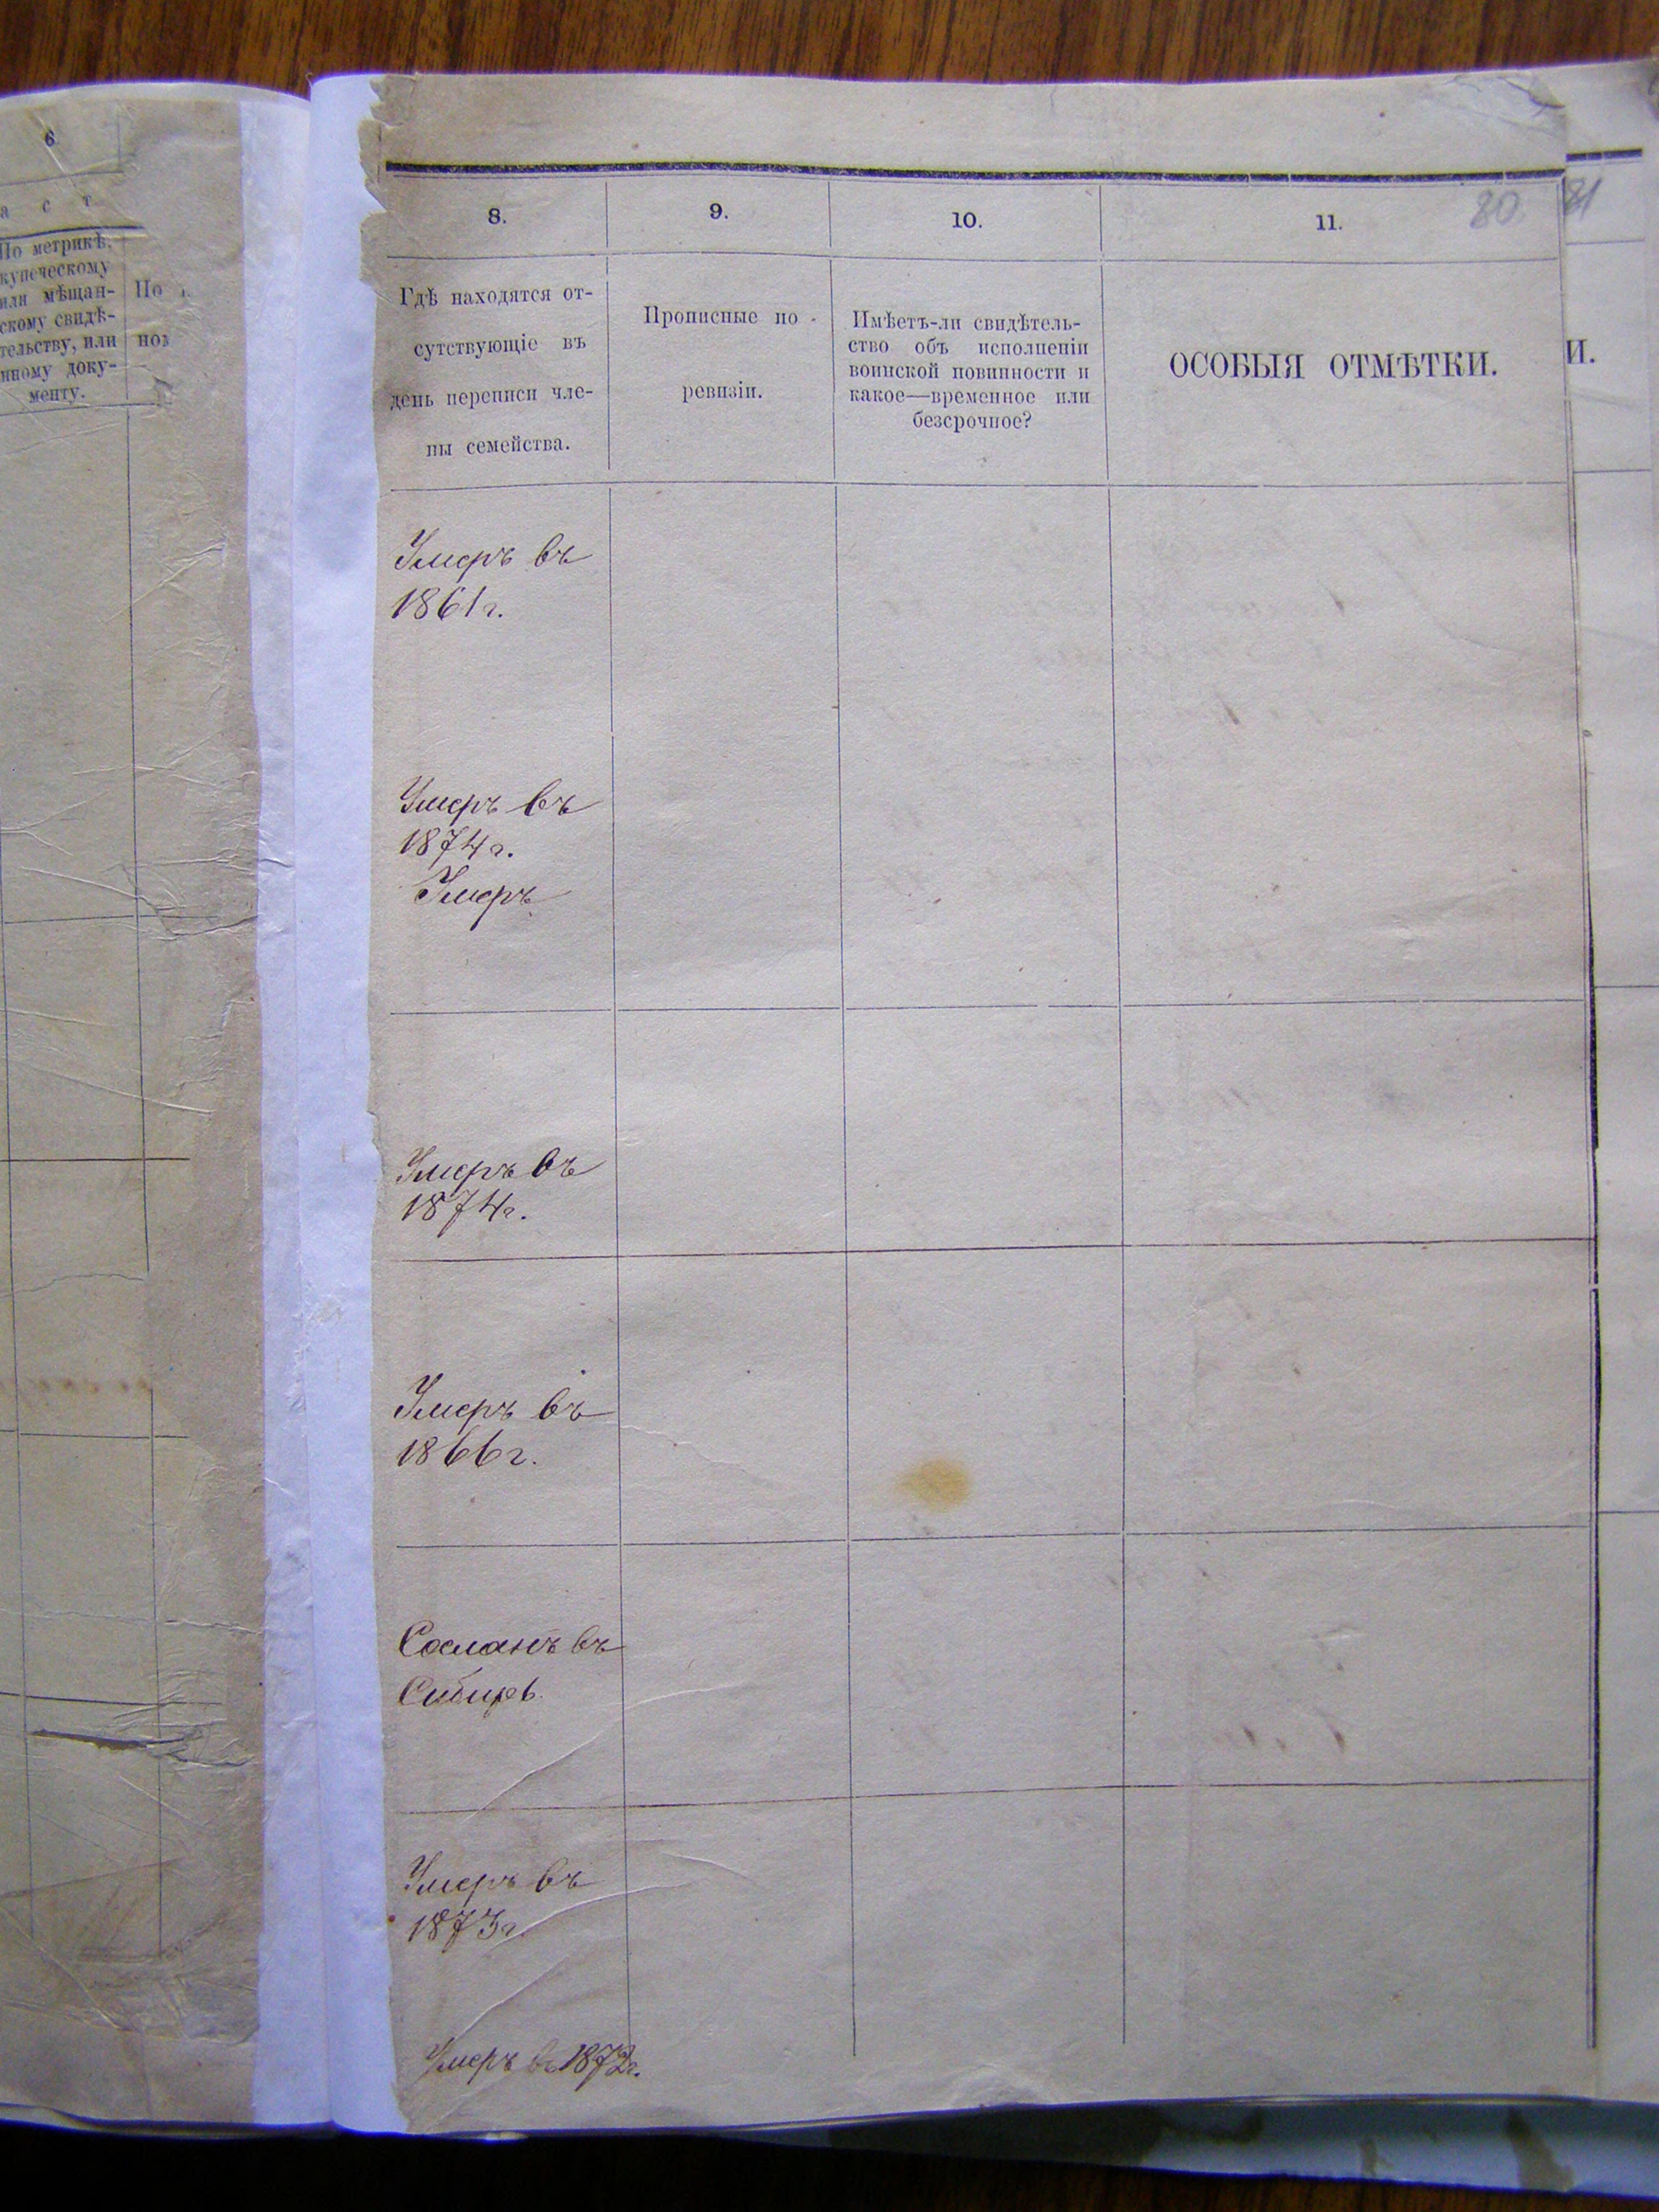 6
а с т
По метрикѣ,
купеческому
или мѣщан-
скому свидѣ-
тельству, или
иному доку-
менту.
По
8.
9.
10.
11.
80
81
Гдѣ находятся от-
сутствующіе въ
день переписи чле-
ны семейства.
Прописные по
ревизіи.
Имѣетъ-ли свидѣтель-
ство объ исполненіи
воинской повинности и
какое—временное или
безсрочное?
ОСОБЫЯ ОТМѢТКИ.
И.
Умеръ въ
1861 г.
Умеръ въ
1874 г.
Умеръ
Умеръ въ
1874 г.
Умеръ въ
1866 г.
Сосланъ въ
Сибирь.
Умеръ въ
1873 г.
Умеръ въ 1872 г.